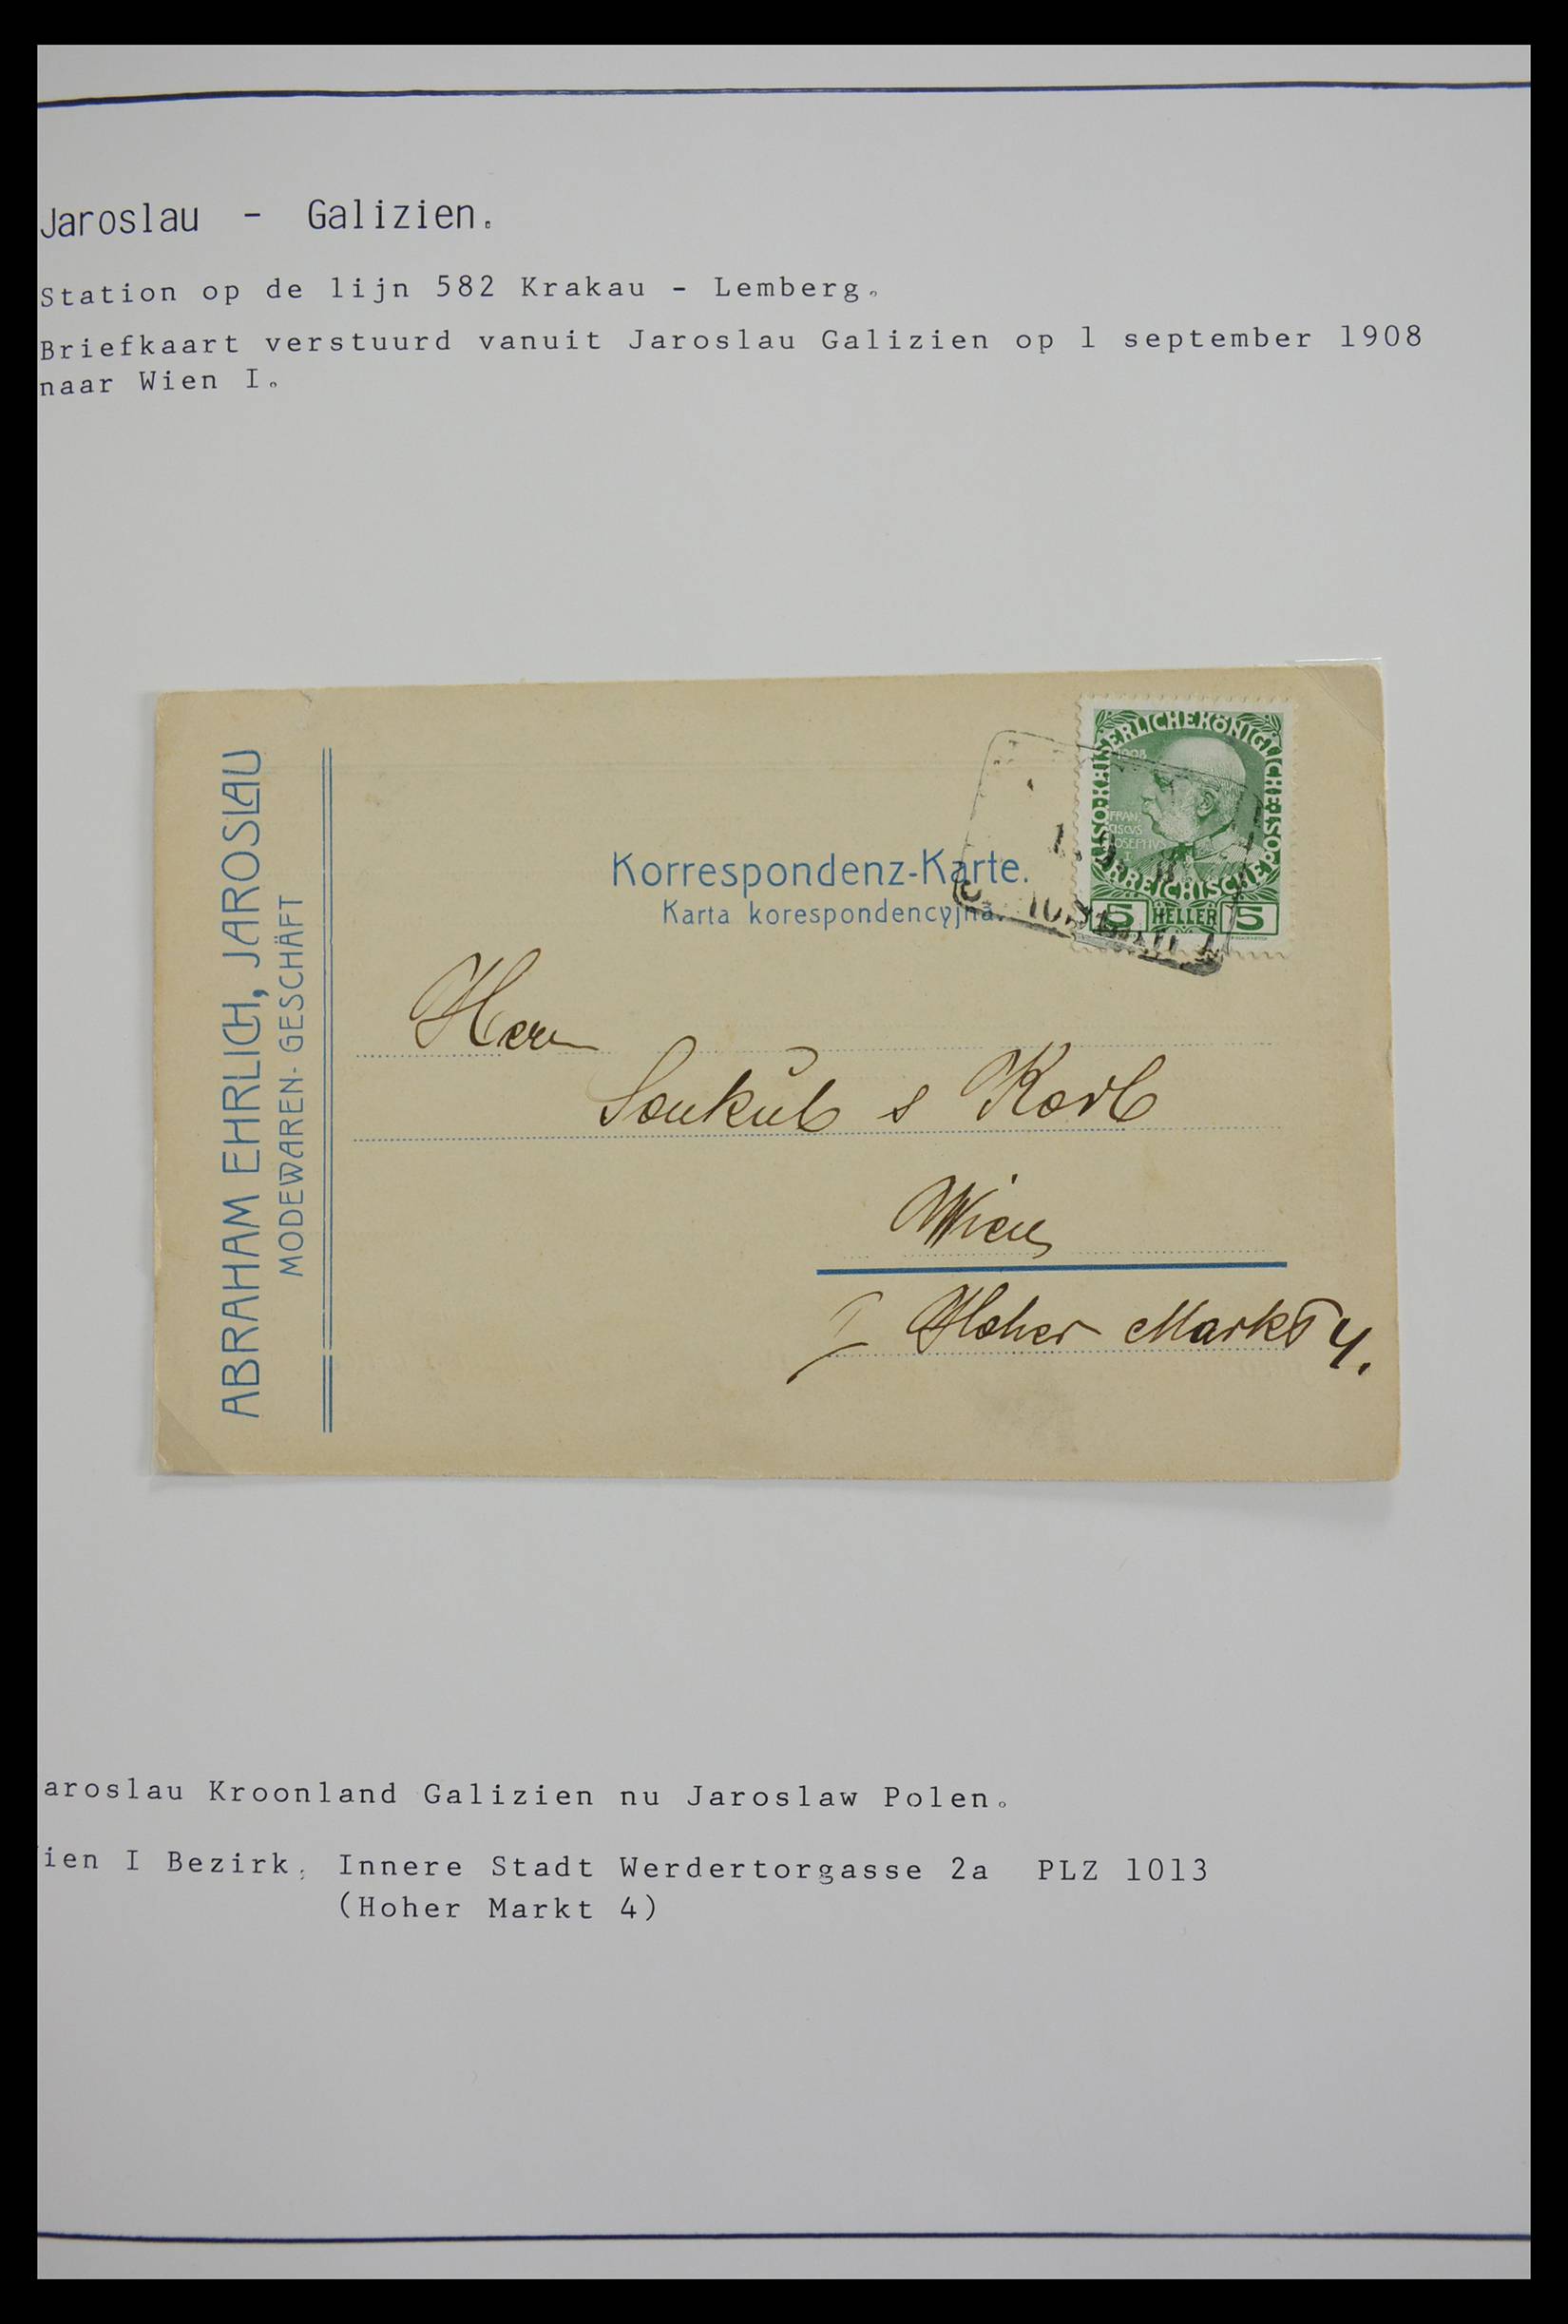 Jaroslau - Galizien.
Station op de lijn 582 Krakau - Lemberg.
Briefkaart verstuurd vanuit Jaroslau Galizien op 1 september 1908
naar Wien I.
ABRAHAM EHRLICH, JAROSLAU
MODEWAREN-GESCHÄFT
KAISERLICHE KÖNIGLICHE ÖSTERREICHISCHE POST
1908
FRAN
CISCVS
IOSEPHVS
I
5 HELLER 5
Korrespondenz-Karte.
Karta korespondencyjna.
Herrn
Soukub & Korb
Wien
I Hoher Markt 4.
aroslau Kroonland Galizien nu Jaroslaw Polen.
ien I Bezirk, Innere Stadt Werdertorgasse 2a PLZ 1013
(Hoher Markt 4)